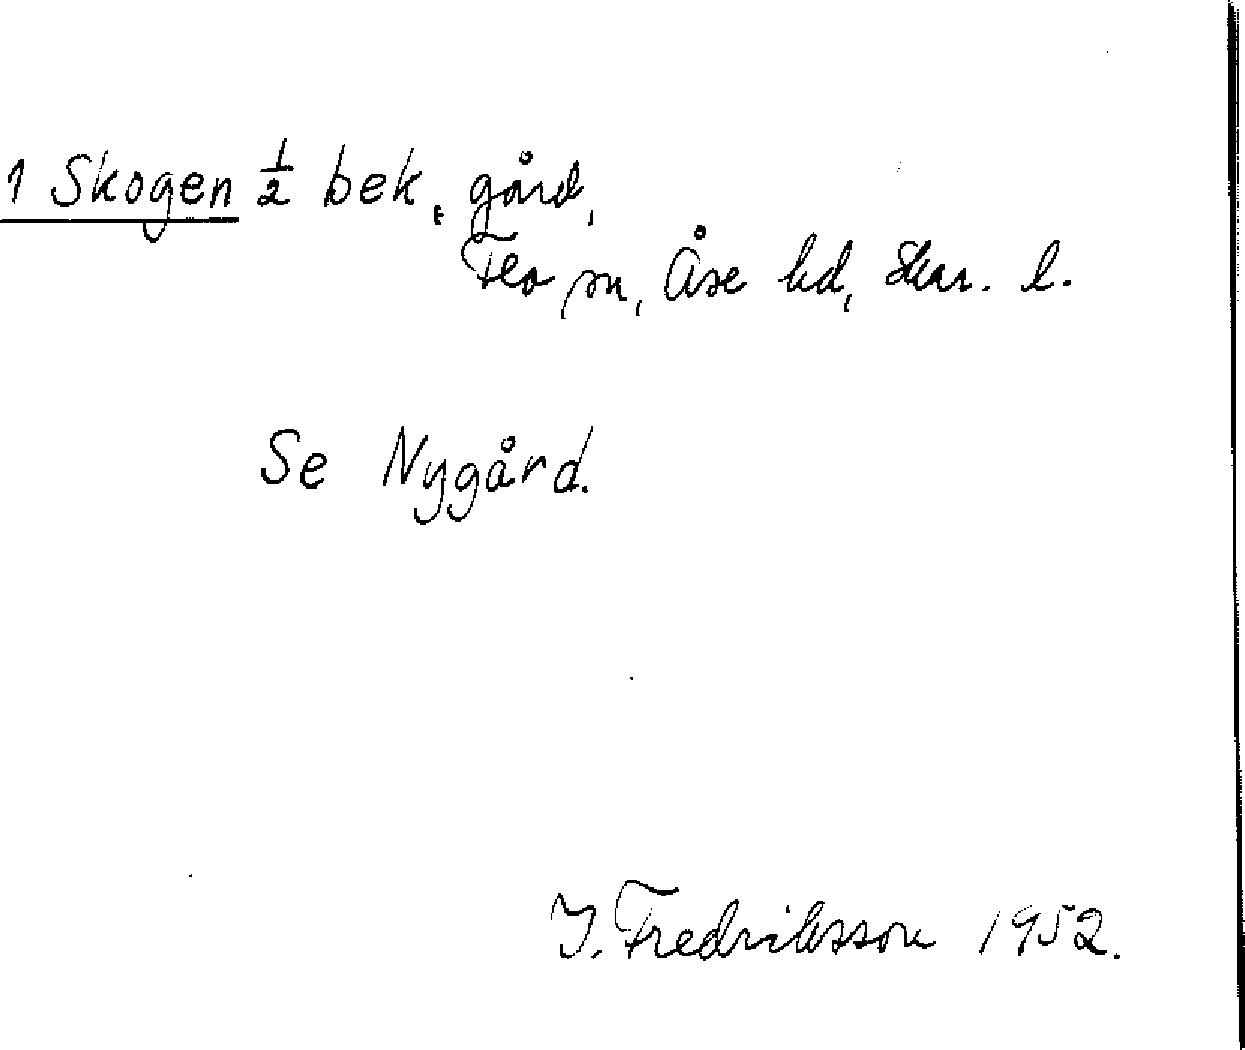 1 Skogen ½ bek. gård,
Flo sn, Åse hd, Skar. l.
Se Nygård.
I. Fredriksson 1952.